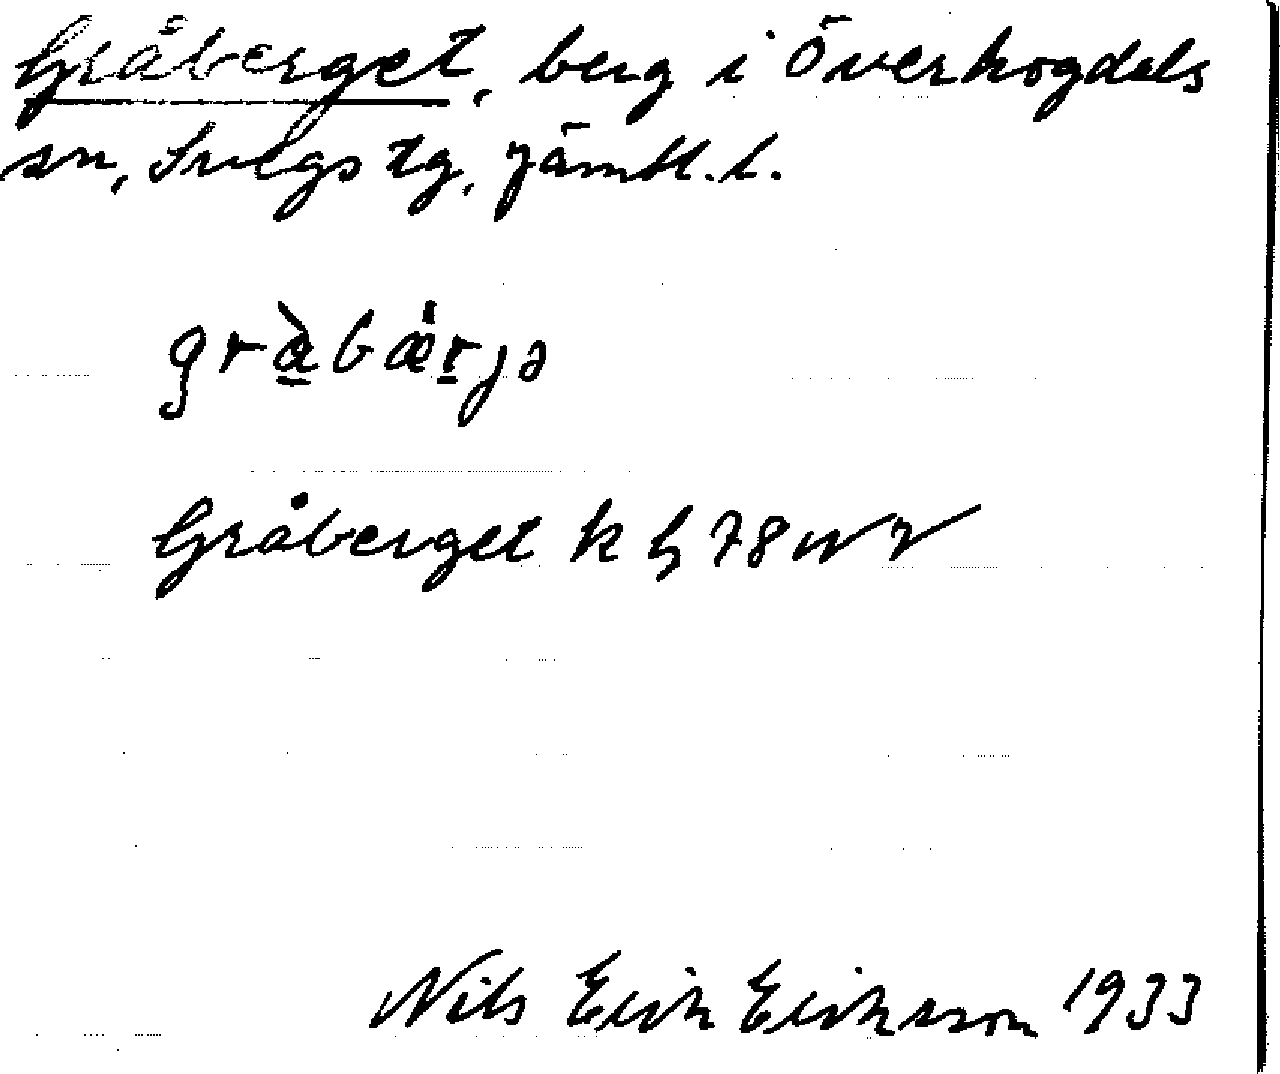 Gråberget, berg i Överhogdals
sn, Svegs tg, Jämtl. l.
gràbǽrjə
Gråberget k h 78 nv
Nils Erik Eriksson 1933